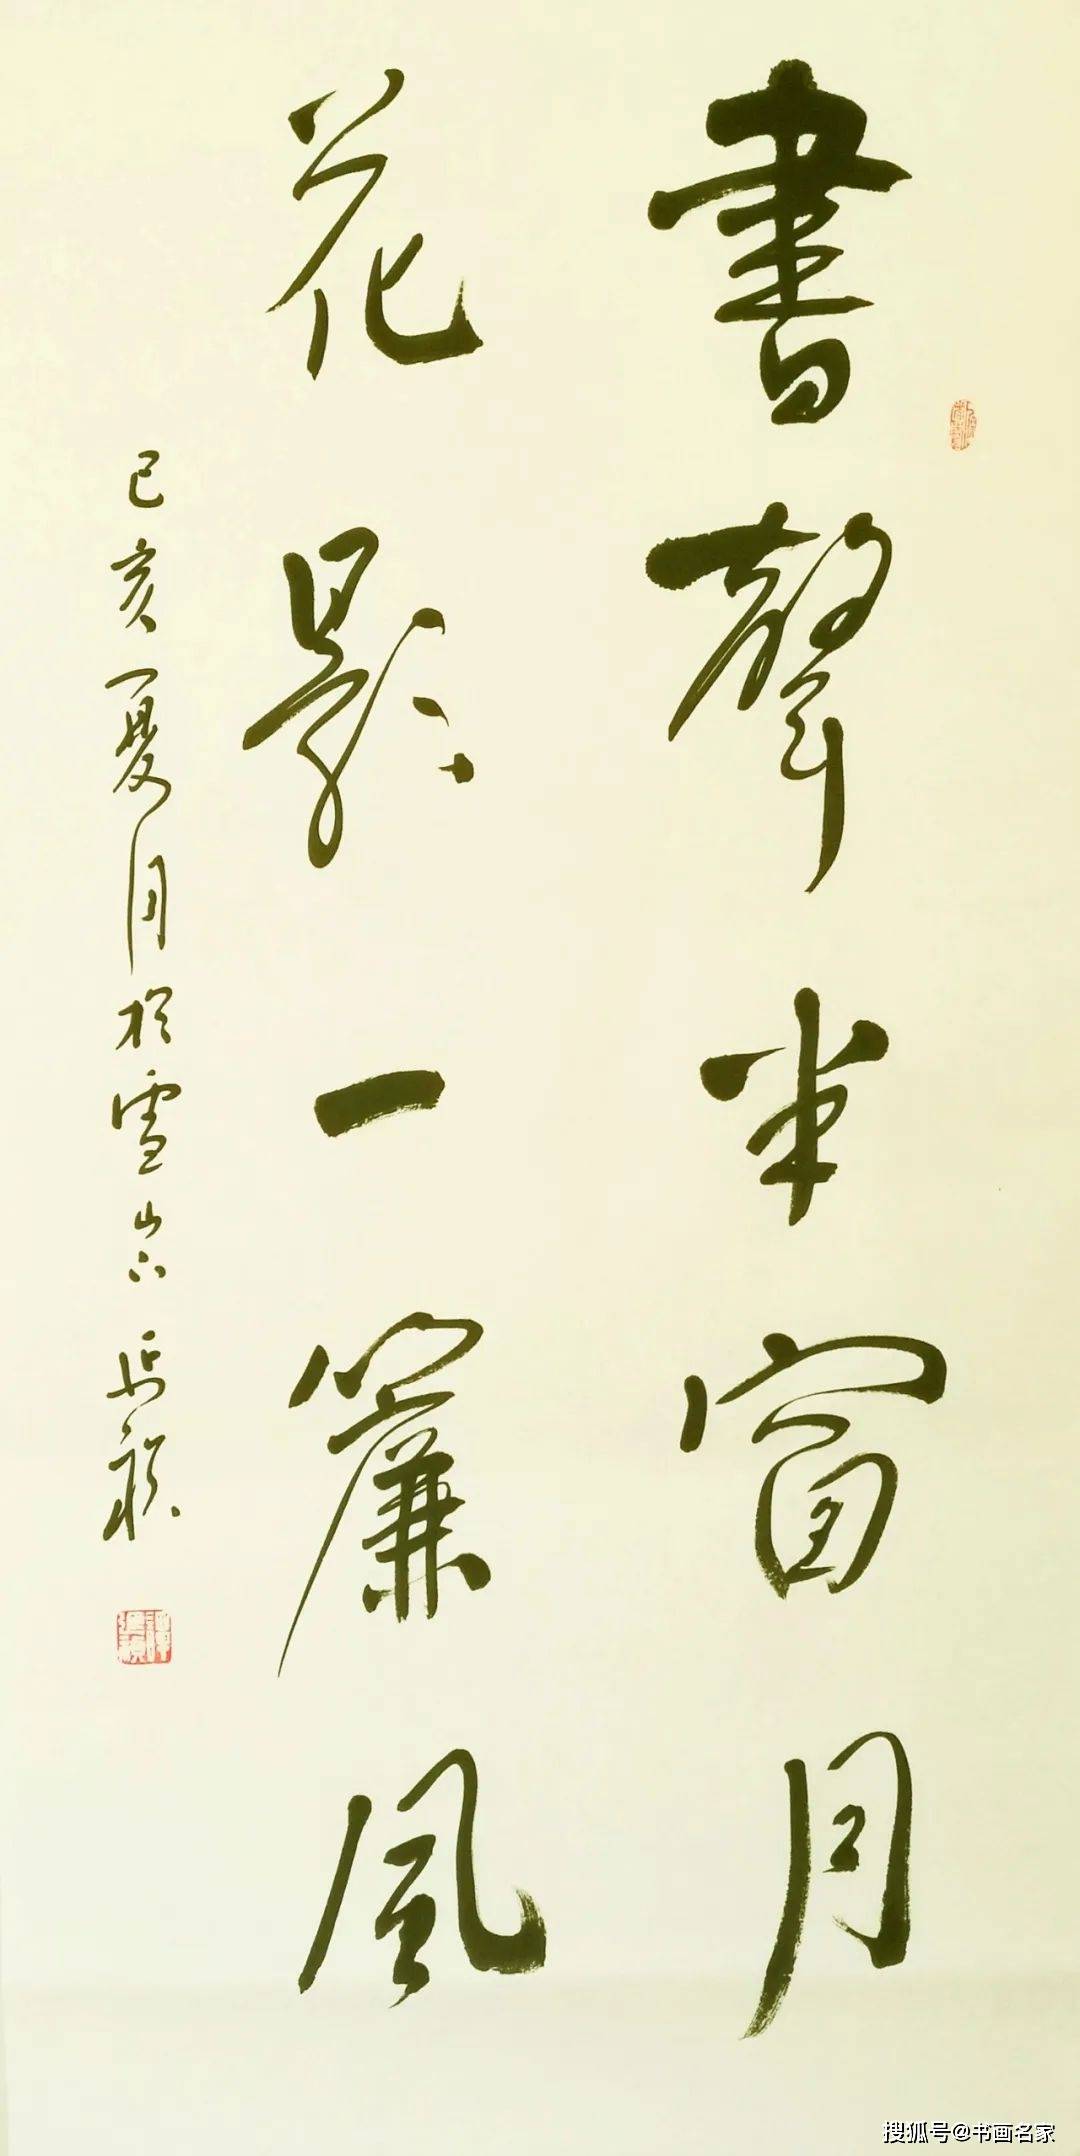 書聲半窗月
花影一簾風
己亥夏月於雪山下
搜狐号@书画名家